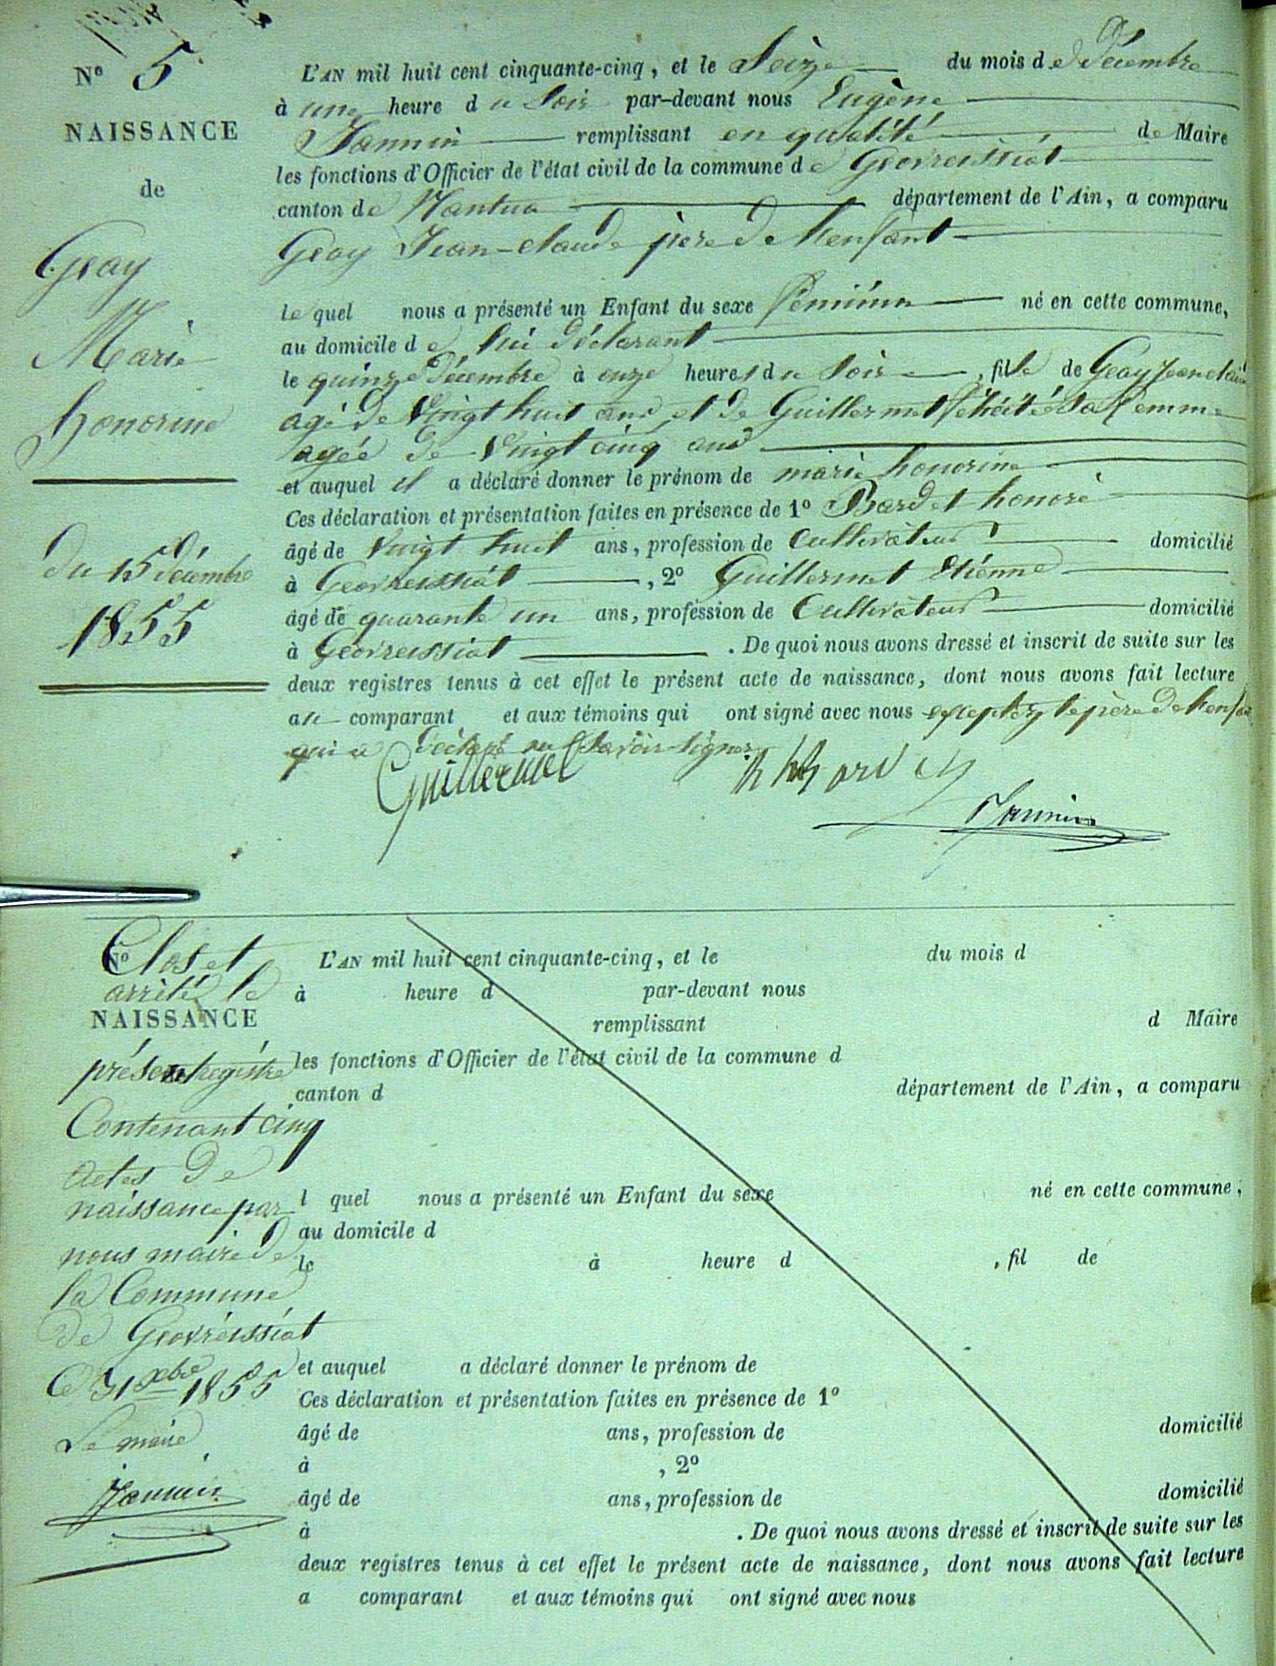 N° 5
NAISSANCE
de
Geay
Marie
honorine
du 15 décembre
1855
L'AN mil huit cent cinquante-cinq, et le Seize du mois de décembre
à une heure du soir par-devant nous Eugène
Jannin remplissant en qualité de Maire
les fonctions d'Officier de l'état civil de la commune de Geovreissiat
canton de Nantua département de l'Ain, a comparu
Geay Jean-claude père de l'enfant
le quel nous a présenté un Enfant du sexe féminin né en cette commune,
au domicile de lui déclarant
le quinze décembre à onze heures du soir, fille de Geay jean claude
agé de vingt huit ans et de Guillermet félicité sa femme
agée de vingt cinq ans
et auquel il a déclaré donner le prénom de marie honorine
Ces déclaration et présentation faites en présence de 1° Bardet honoré
âgé de vingt huit ans, profession de cultivateur domicilié
à Geovreissiat, 2° Guillermet Etienne
âgé de quarante un ans, profession de Cultivateur domicilié
à Geovreissiat. De quoi nous avons dressé et inscrit de suite sur les
deux registres tenus à cet effet le présent acte de naissance, dont nous avons fait lecture
au comparant et aux témoins qui ont signé avec nous exceptez le père de l'enfant
qui a déclaré ne savoir signer
Guillermet h Bardet
Jannin
N° Clos et
arrêté le
NAISSANCE
présent registre
Contenant cinq
actes de
naissance par
nous maire de
la Commune
de Geovreissiat
Ce 31 xbre 1855
Le maire
Jannin
L'AN mil huit cent cinquante-cinq, et le du mois d
à heure d par-devant nous
remplissant d Maire
les fonctions d'Officier de l'état civil de la commune d
canton d département de l'Ain, a comparu
l quel nous a présenté un Enfant du sexe né en cette commune,
au domicile d
le à heure d , fil de
et auquel a déclaré donner le prénom de
Ces déclaration et présentation faites en présence de 1°
âgé de ans, profession de domicilié
à , 2°
âgé de ans, profession de domicilié
à . De quoi nous avons dressé et inscrit de suite sur les
deux registres tenus à cet effet le présent acte de naissance, dont nous avons fait lecture
a comparant et aux témoins qui ont signé avec nous